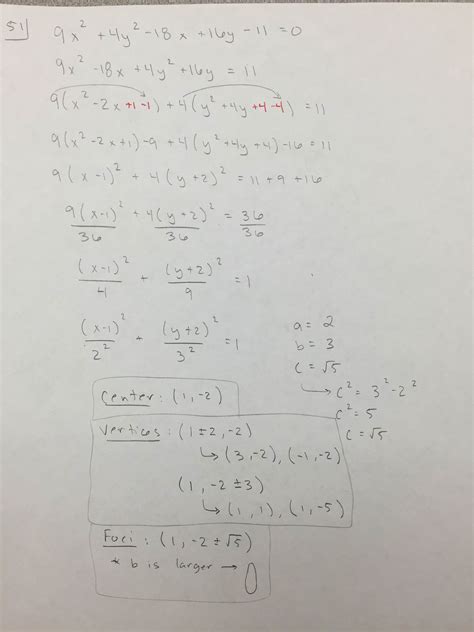 51
9x² + 4y² - 18x + 16y - 11 = 0
9x² - 18x + 4y² + 16y = 11
9(x² - 2x +1 -1) + 4(y² + 4y +4 -4) = 11
9(x² - 2x + 1) - 9 + 4(y² + 4y + 4) - 16 = 11
9(x - 1)² + 4(y + 2)² = 11 + 9 + 16
9(x-1)²/36 + 4(y+2)²/36 = 36/36
(x-1)²/4 + (y+2)²/9 = 1
(x-1)²/2² + (y+2)²/3² = 1
a = 2
b = 3
c = √5
→ c² = 3² - 2²
c² = 5
c = √5
Center: (1, -2)
Vertices: (1 ± 2, -2)
↳ (3, -2), (-1, -2)
(1, -2 ± 3)
↳ (1, 1), (1, -5)
Foci: (1, -2 ± √5)
* b is larger →